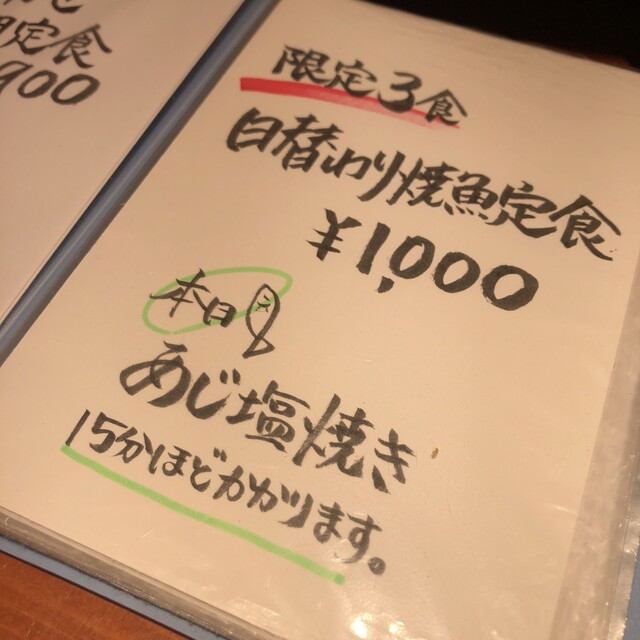 定食
900
限定3食
日替わり焼魚定食
¥1,000
本日
あじ塩焼き
15分ほどかかります。